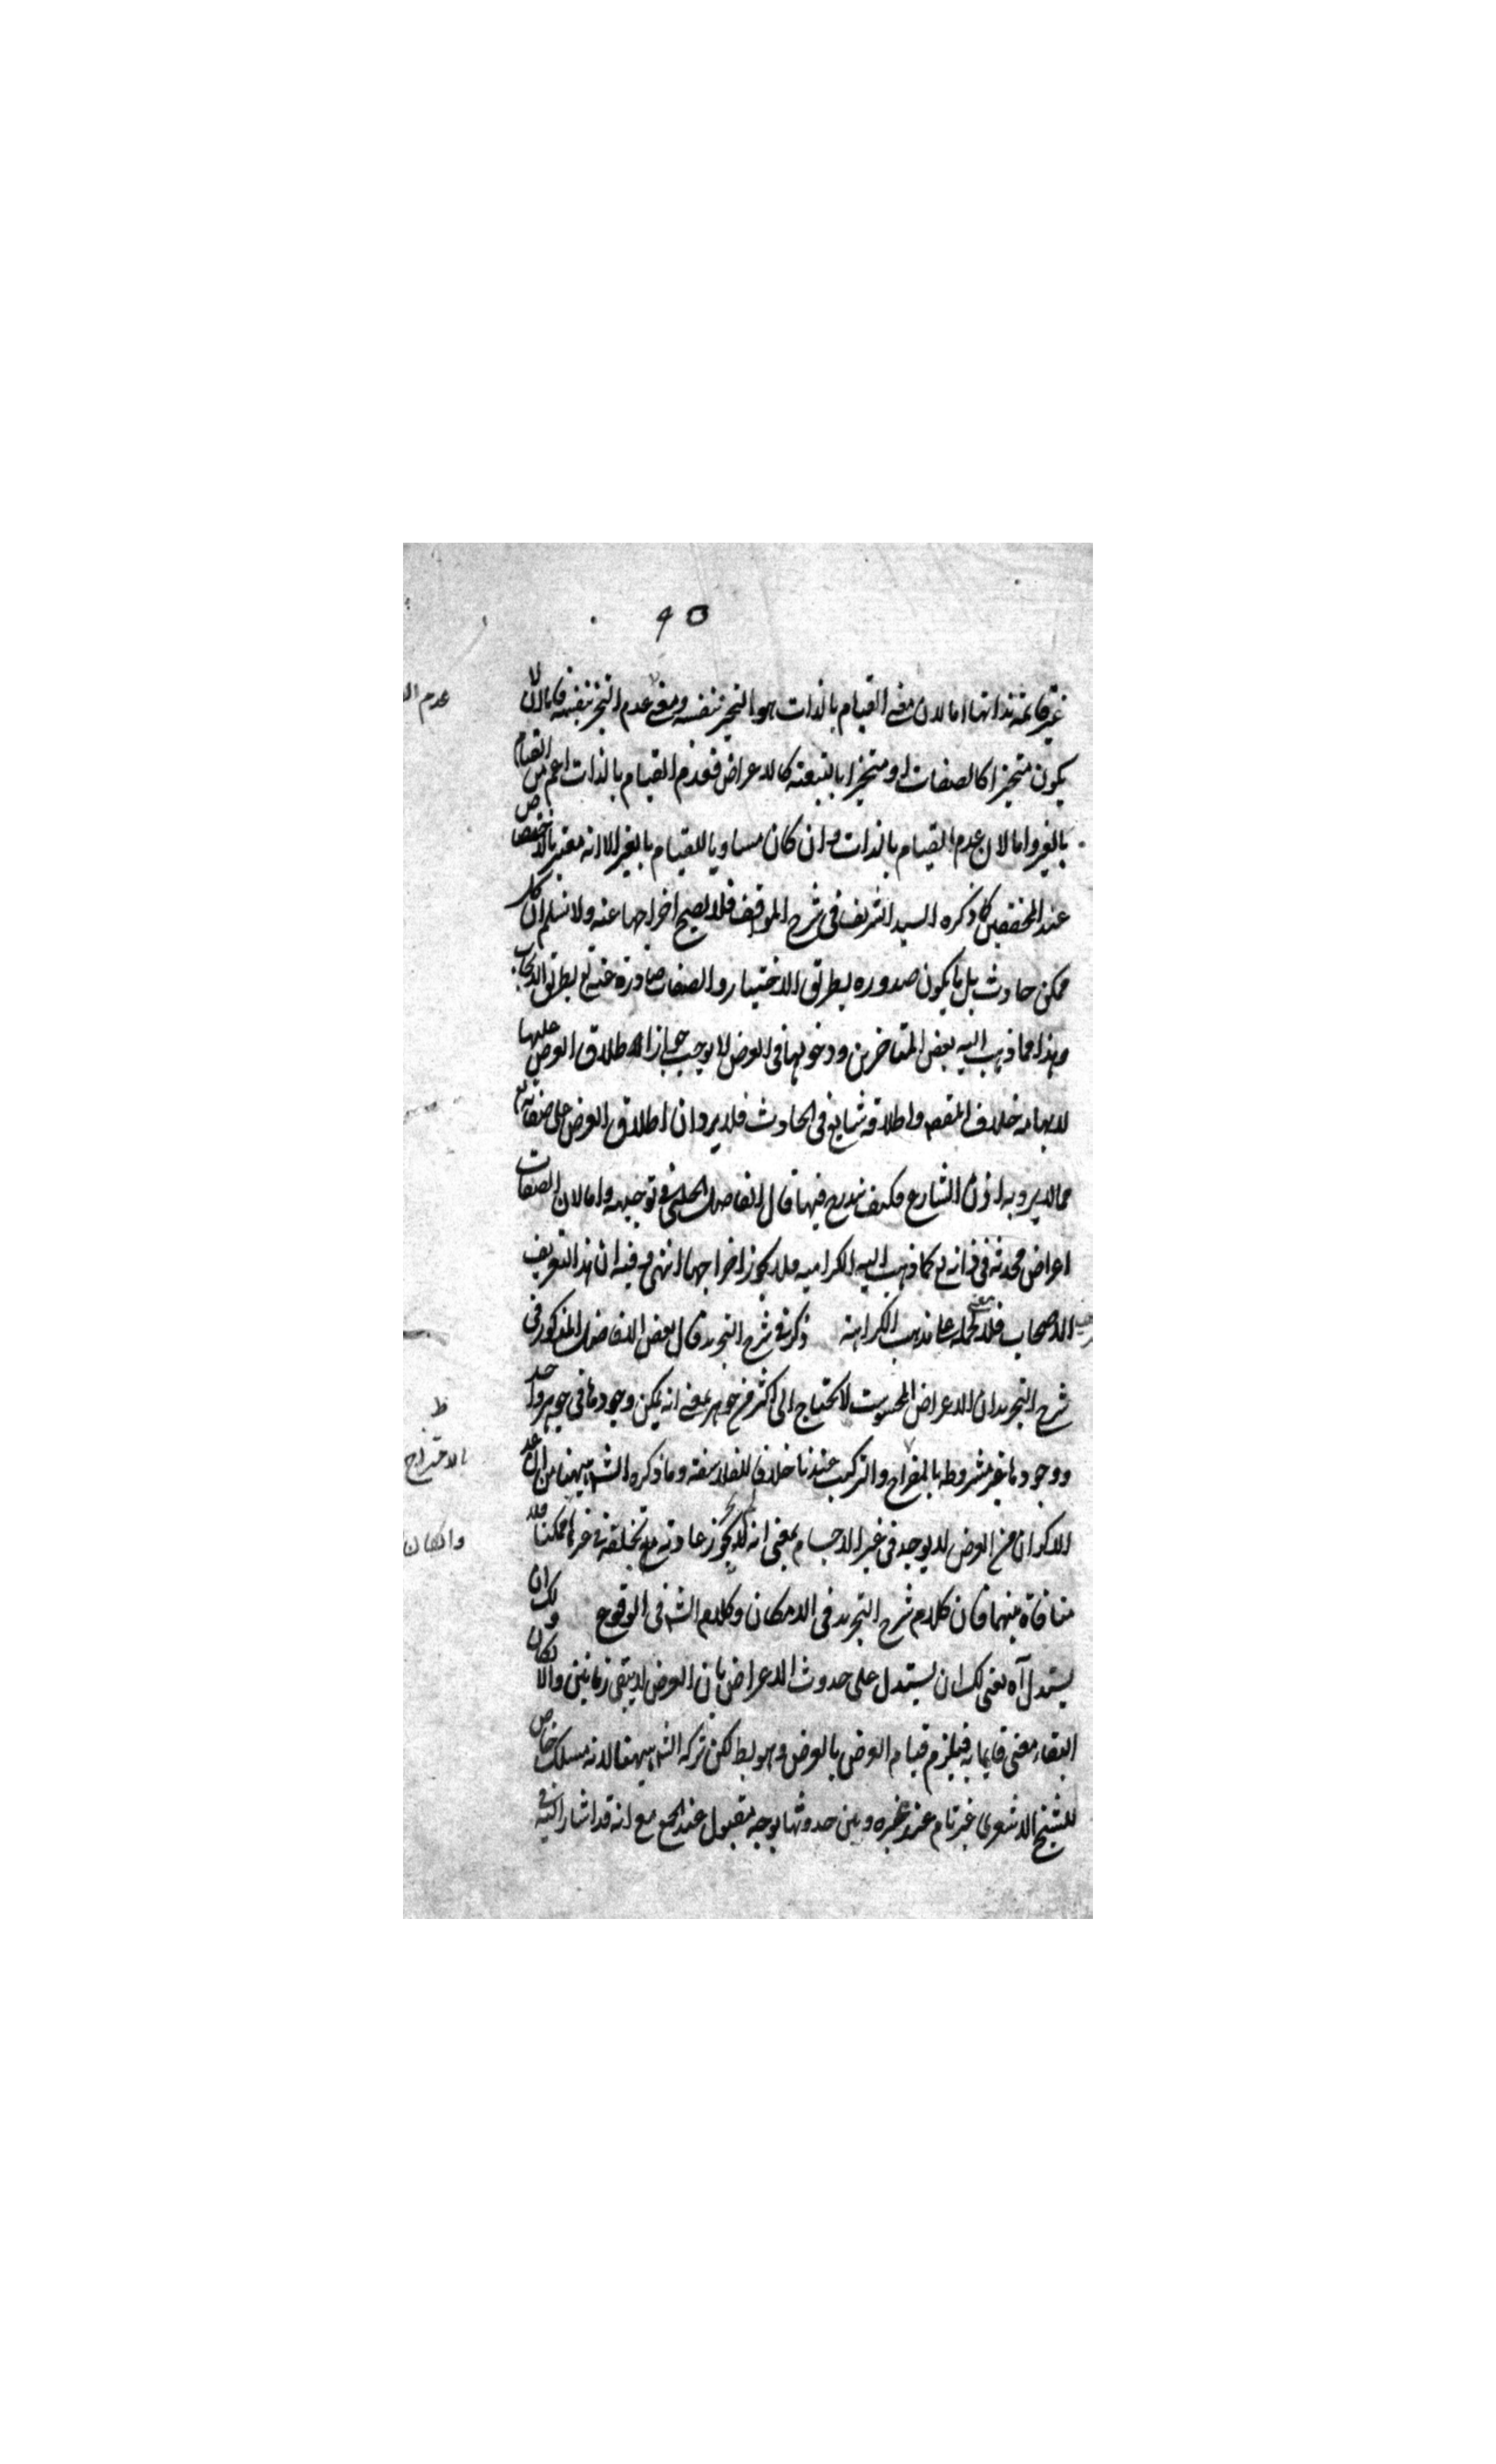 ٩٥
غير قائمة بذاتها اما لان معنى القيام بالذات هو التحيز بنفسه ومعنى عدم التحيز بنفسه فاما ان لا
يكون متحيزا كالصفات او متحيزا بالتبعية كالاعراض فعدم القيام بالذات اعم من القيام
بالغير واما لان عدم القيام بالذات وان كان مساويا للقيام بالغير الا انه مفسر بالاختصاص
عند المحققين كما ذكره السيد الشريف في شرح المواقف فلا يصح اخراجها عنه ولا نسلم ان كل
ممكن حادث بل ما يكون صدوره بطريق الاختيار والصفات صادرة عنه تع بطريق الايجاب
وهذا مما ذهب اليه بعض المتاخرين ودخولها في العرض لا يوجب جواز اطلاق العرض عليها
لايهامه خلاف المقصود واطلاقه شايع في الحادث فلا يرد ان اطلاق العرض على صفاته تع
مما لم يرد به اذن الشارع فكيف يندرج فيها قال الفاضل الحلبي في توجيهه واما لان الصفات
اعراض محدثة في ذاته تع كما ذهب اليه الكرامية فلا يجوز اخراجها انتهى وفيه ان هذا التعريف
الاصحاب فلا معنى لحمله على مذهب الكرامية ذكر في شرح التجريد قال بعض الافاضل المذكور في
شرح التجريد ان الاعراض المحسوسة لا تحتاج الى اكثر من جوهر بمعنى انه يمكن وجودها في جوهر واحد
ووجودها غير مشروط بالمزاج والتركيب عندنا خلافا للفلاسفة وما ذكره الش ههنا من ان ما عد
الاكوان من العرض لا يوجد في غير الاجسام بمعنى انه لم يجز عادته تع بخلقه في غيرها ممكنا فلا
منافاة بينهما فان كلام شرح التجريد في الامكان وكلام الش في الوقوع ولك ان
يستدل آه يعنى لك ان يستدل على حدوث الاعراض بان العرض لا يبقى زمانين والا لكان
البقاء معنى قايما به فيلزم قيام العرض بالعرض وهو بط لكن تركه الش ههنا لانه مسلك خاص
للشيخ الاشعري غير تام عند غيره وبين حدوثها بوجه مقبول عند الجمع مع انه قد اشار اليه في
عدم ال
ظ